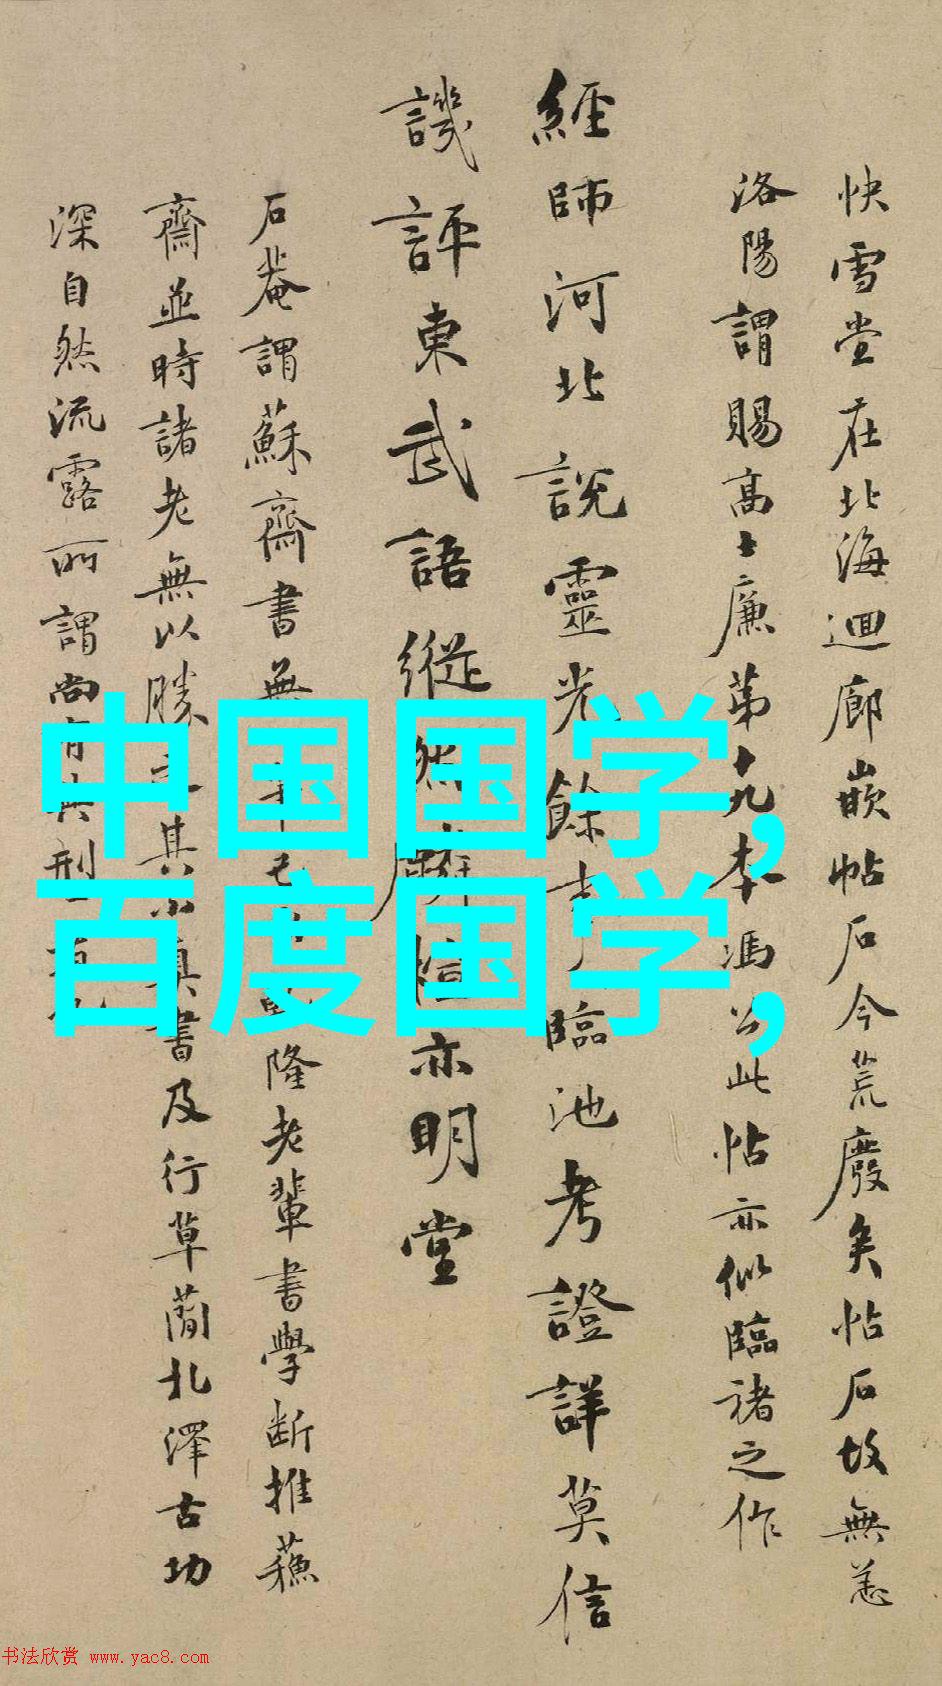 快雪堂在北海迴廊嵌帖石今荒廢矣帖石故無恙
洛陽謂賜高士廉第十九本馮公此帖亦似臨褚之作
經師河北說靈光餘事臨池考證詳莫信
譏評東武語縱然亦明堂
石菴謂蘇齋書無隆老輩書學斷推蘇
齋並時諸老無以勝其小真書及行草蕳北澤古功
深自然流露所謂尚有典刑
中国国学,
百度国学,
书法欣赏 www.yac8.com